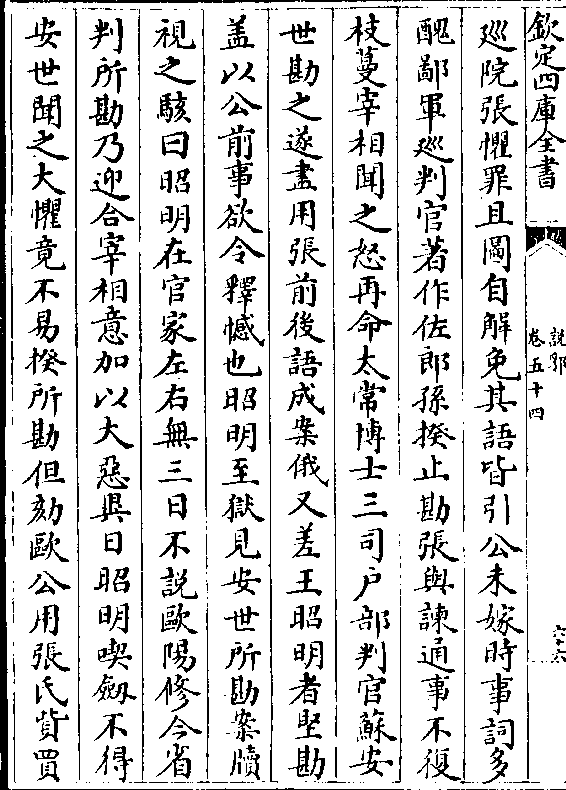 欽定四庫全書
說郛
卷五十四
六十六
廵院張懼罪且圖自解免其語皆引公未嫁時事詞多
醜鄙軍廵判官著作佐郎孫揆止勘張與諫通事不復
枝蔓宰相聞之怒再命太常博士三司户部判官蘇安
世勘之遂盡用張前後語成案俄又差王昭明者監勘
盖以公前事欲令釋憾也昭明至獄見安世所勘案牘
視之駭曰昭明在官家左右無三日不說歐陽修今省
判所勘乃迎合宰相意加以大惡異日昭明喫劒不得
安世聞之大懼竟不易揆所勘但劾歐公用張氏貲買